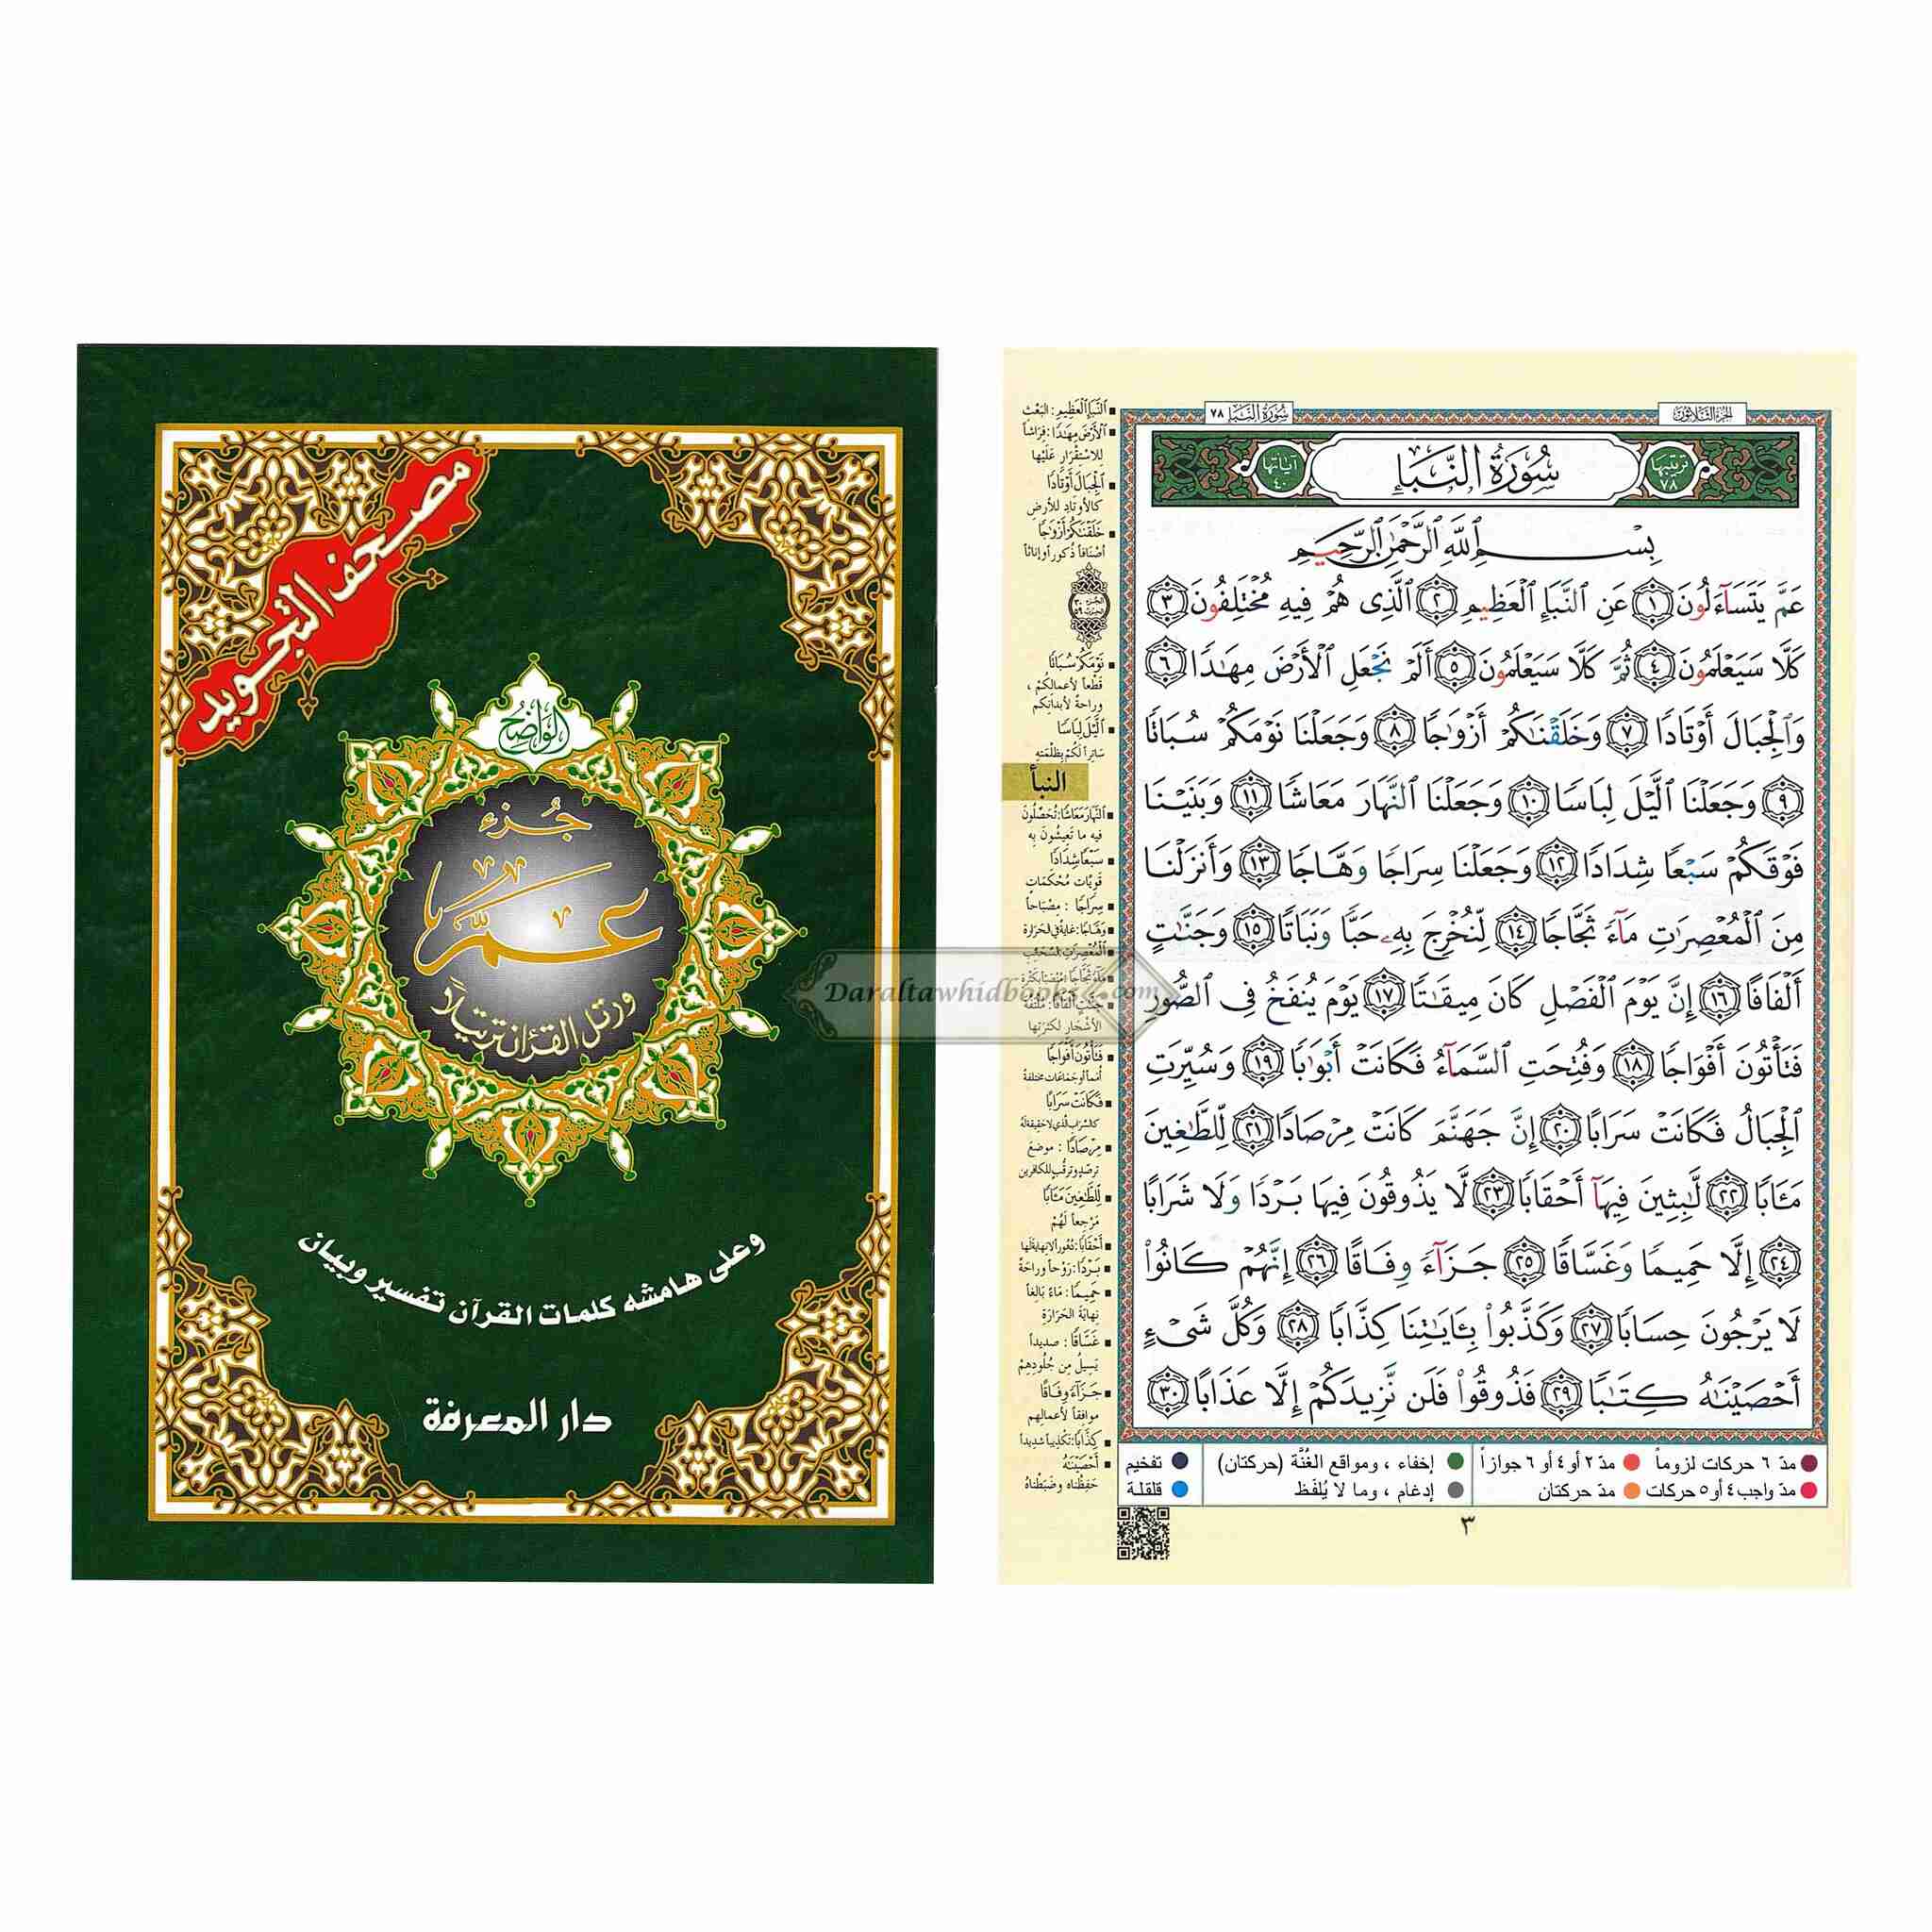 مصحف التجويد
الواضح
جُزء
عَمَّ
ورتل القرءان ترتيلاً
وعلى هامشه كلمات القرآن تفسير وبيان
دار المعرفة
سُورَةُ النَّبَإِ ٧٨
الجزء الثلاثون
ترتيبها ٧٨
سُورَةُ النَّبَإِ
آياتها ٤٠
بِسْمِ ٱللَّهِ ٱلرَّحْمَٰنِ ٱلرَّحِيمِ
عَمَّ يَتَسَآءَلُونَ ١ عَنِ ٱلنَّبَإِ ٱلْعَظِيمِ ٢ ٱلَّذِى هُمْ فِيهِ مُخْتَلِفُونَ ٣
كَلَّا سَيَعْلَمُونَ ٤ ثُمَّ كَلَّا سَيَعْلَمُونَ ٥ أَلَمْ نَجْعَلِ ٱلْأَرْضَ مِهَٰدًا ٦
وَٱلْجِبَالَ أَوْتَادًا ٧ وَخَلَقْنَٰكُمْ أَزْوَٰجًا ٨ وَجَعَلْنَا نَوْمَكُمْ سُبَاتًا
٩ وَجَعَلْنَا ٱلَّيْلَ لِبَاسًا ١٠ وَجَعَلْنَا ٱلنَّهَارَ مَعَاشًا ١١ وَبَنَيْنَا
فَوْقَكُمْ سَبْعًا شِدَادًا ١٢ وَجَعَلْنَا سِرَاجًا وَهَّاجًا ١٣ وَأَنزَلْنَا
مِنَ ٱلْمُعْصِرَٰتِ مَآءً ثَجَّاجًا ١٤ لِّنُخْرِجَ بِهِۦ حَبًّا وَنَبَاتًا ١٥ وَجَنَّٰتٍ
أَلْفَافًا ١٦ إِنَّ يَوْمَ ٱلْفَصْلِ كَانَ مِيقَٰتًا ١٧ يَوْمَ يُنفَخُ فِى ٱلصُّورِ
فَتَأْتُونَ أَفْوَاجًا ١٨ وَفُتِحَتِ ٱلسَّمَآءُ فَكَانَتْ أَبْوَٰبًا ١٩ وَسُيِّرَتِ
ٱلْجِبَالُ فَكَانَتْ سَرَابًا ٢٠ إِنَّ جَهَنَّمَ كَانَتْ مِرْصَادًا ٢١ لِّلطَّٰغِينَ
مَـَٔابًا ٢٢ لَّٰبِثِينَ فِيهَآ أَحْقَابًا ٢٣ لَّا يَذُوقُونَ فِيهَا بَرْدًا وَلَا شَرَابًا
٢٤ إِلَّا حَمِيمًا وَغَسَّاقًا ٢٥ جَزَآءً وِفَاقًا ٢٦ إِنَّهُمْ كَانُوا۟
لَا يَرْجُونَ حِسَابًا ٢٧ وَكَذَّبُوا۟ بِـَٔايَٰتِنَا كِذَّابًا ٢٨ وَكُلَّ شَىْءٍ
أَحْصَيْنَٰهُ كِتَٰبًا ٢٩ فَذُوقُوا۟ فَلَن نَّزِيدَكُمْ إِلَّا عَذَابًا ٣٠
النَّبَإِ الْعَظِيمِ : البَعْث
الأَرْضَ مِهَٰدًا : فِرَاشاً
للاسْتِقْرَارِ عَلَيْها
الْجِبَالَ أَوْتَادًا
كالأوتَادِ للأرضِ
خَلَقْنَٰكُمْ أَزْوَٰجًا
أصْنَافاً ذُكُوراً وإناثاً
نَوْمَكُمْ سُبَاتًا
قَطْعاً لأعمالِكُمْ ،
وراحةً لأبدانِكم
الَّيْلَ لِبَاسًا
سَاتِراً لَكُمْ بِظُلْمَتِهِ
النبأ
النَّهَارَ مَعَاشًا : تُحَصِّلُونَ
فيه ما تَعِيشُونَ به
سَبْعًا شِدَادًا
قَوِيَّات مُحْكَمَاتٍ
سِرَاجًا : مِصْبَاحاً
وَهَّاجًا : غايةً في الحَرَارةِ
الأشْجَارِ لكثرَتِها
فَتَأْتُونَ أَفْوَاجًا
أُمَماً أو جَمَاعَات مختلفةً
فَكَانَتْ سَرَابًا
كالسَّرَابِ الَّذي لا حَقِيقَةَ لَهُ
مِرْصَادًا : موضعَ
ترصُّدٍ وترقُّبٍ للكافرين
لِلطَّٰغِينَ مَـَٔابًا
مَرْجِعاً لَهُمْ
أَحْقَابًا : دُهُوراً لا نِهايةَ لَها
بَرْدًا : رَوْحاً وراحَةً
حَمِيمًا : مَاءً بَالِغاً
نِهايَةَ الحَرَارَةِ
غَسَّاقًا : صديداً
يَسِيلُ مِن جُلُودِهِمْ
جَزَآءً وِفَاقًا
موافِقاً لأعمالِهم
كِذَّابًا : تكذيباً شديداً
أَحْصَيْنَٰهُ
حَفِظْناه وضَبَطْناهُ
Daraltawhidbooks.com
مدّ ٦ حركات لزوماً
مدّ ٢ أو ٤ أو ٦ جوازاً
إخفاء ، ومواقع الغُنَّة (حركتان)
تفخيم
مدّ واجب ٤ أو ٥ حركات
مدّ حركتان
إدغام ، وما لا يُلفَظ
قلقلة
٣